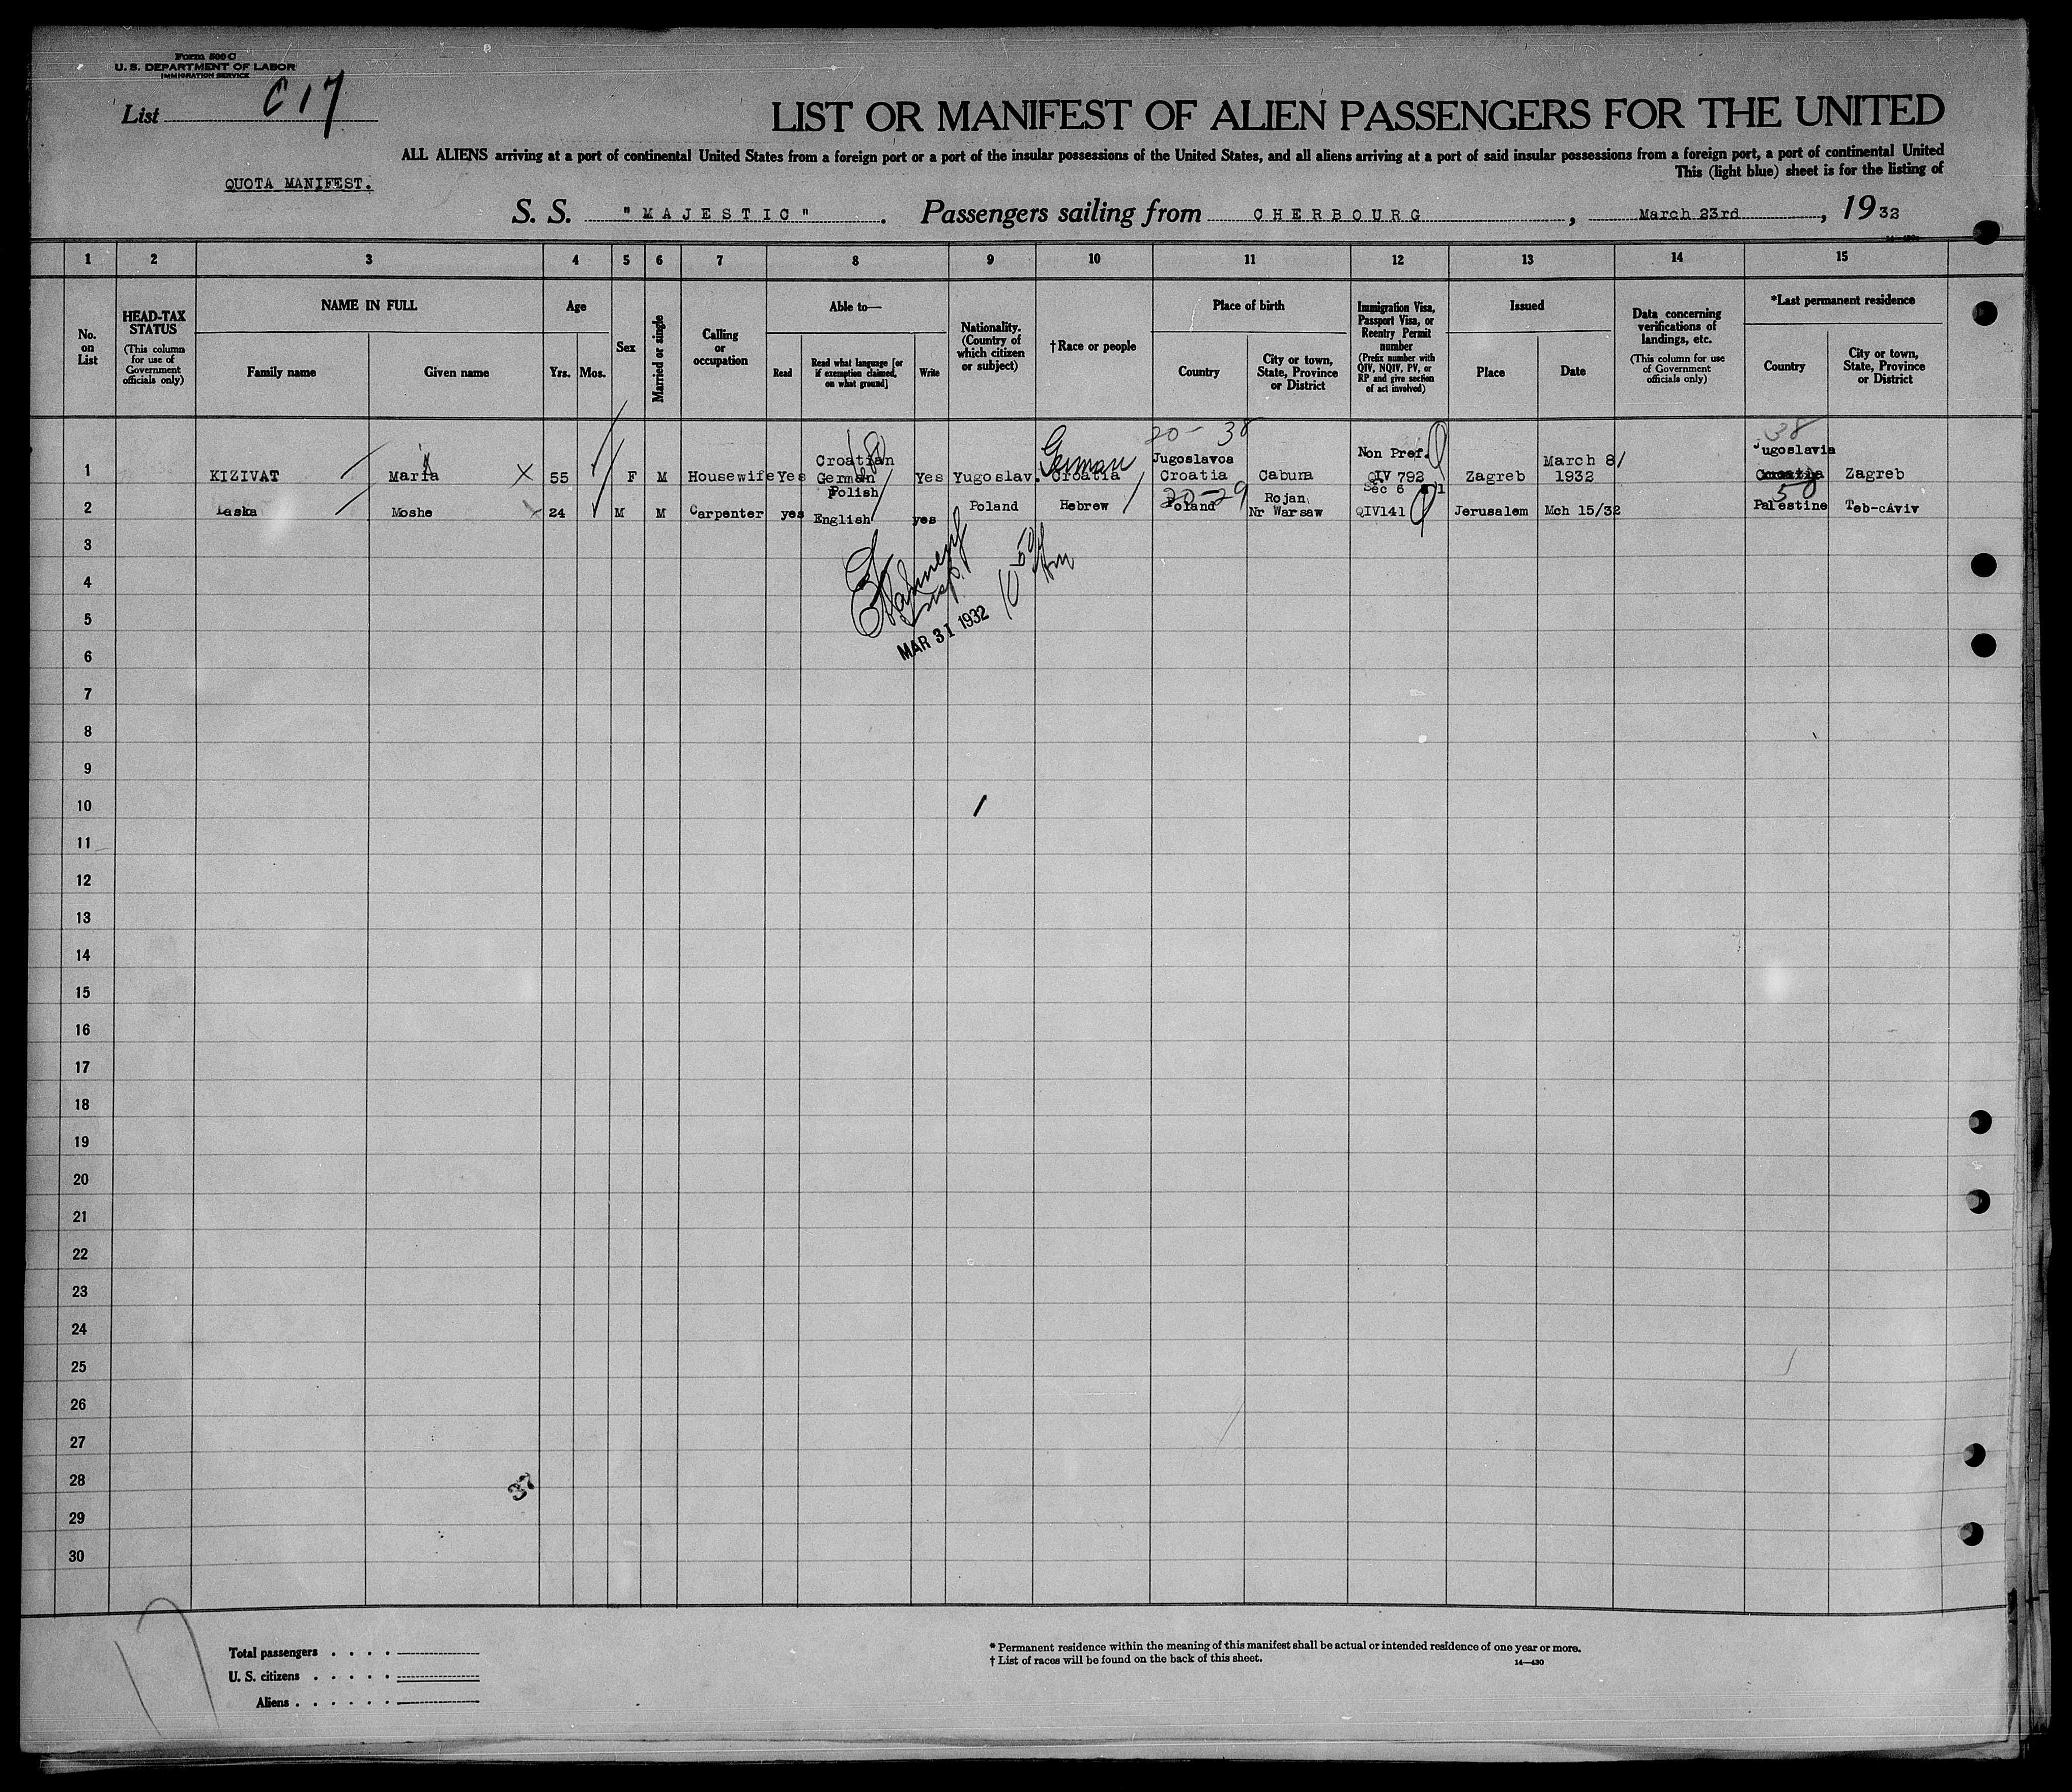 Form 500 C
U. S. DEPARTMENT OF LABOR
IMMIGRATION SERVICE
List C 17
LIST OR MANIFEST OF ALIEN PASSENGERS FOR THE UNITED
ALL ALIENS arriving at a port of continental United States from a foreign port or a port of the insular possessions of the United States, and all aliens arriving at a port of said insular possessions from a foreign port, a port of continental United
This (light blue) sheet is for the listing of
QUOTA MANIFEST.
S. S. "MAJESTIC". Passengers sailing from CHERBOURG, March 23rd, 1932
1 2 3 4 5 6 7 8 9 10 11 12 13 14 15
No. on List
HEAD-TAX STATUS
(This column for use of Government officials only)
NAME IN FULL
Family name
Given name
Age
Yrs. Mos.
Sex
Married or single
Calling or occupation
Able to—
Read
Read what language [or if exemption claimed, on what ground]
Write
Nationality. (Country of which citizen or subject)
†Race or people
Place of birth
Country
City or town, State, Province or District
Immigration Visa, Passport Visa, or Reentry Permit number
(Prefix number with QIV, NQIV, PV, or RP and give section of act involved)
Issued
Place
Date
Data concerning verifications of landings, etc.
(This column for use of Government officials only)
*Last permanent residence
Country
City or town, State, Province or District
20- 38
38
1 KIZIVAT Maria X 55 F M Housewife Yes Croatian German Yes Yugoslav. German Croatia Jugoslavoa Croatia Cabuna Non Pref. QIV 792 Sec 6 Zagreb March 8/ 1932 Jugoslavia Croatia Zagreb
20-29
50
2 Laska Moshe 24 M M Carpenter yes Polish English yes Poland Hebrew Poland Rojan Nr Warsaw QIV141 Jerusalem Mch 15/32 Palestine Teb-cAviv
3
4
5
MAR 31 1932
6
7
8
9
10
11
12
13
14
15
16
17
18
19
20
21
22
23
24
25
26
27
28
29
30
Total passengers
U. S. citizens
Aliens
* Permanent residence within the meaning of this manifest shall be actual or intended residence of one year or more.
† List of races will be found on the back of this sheet.
14—430